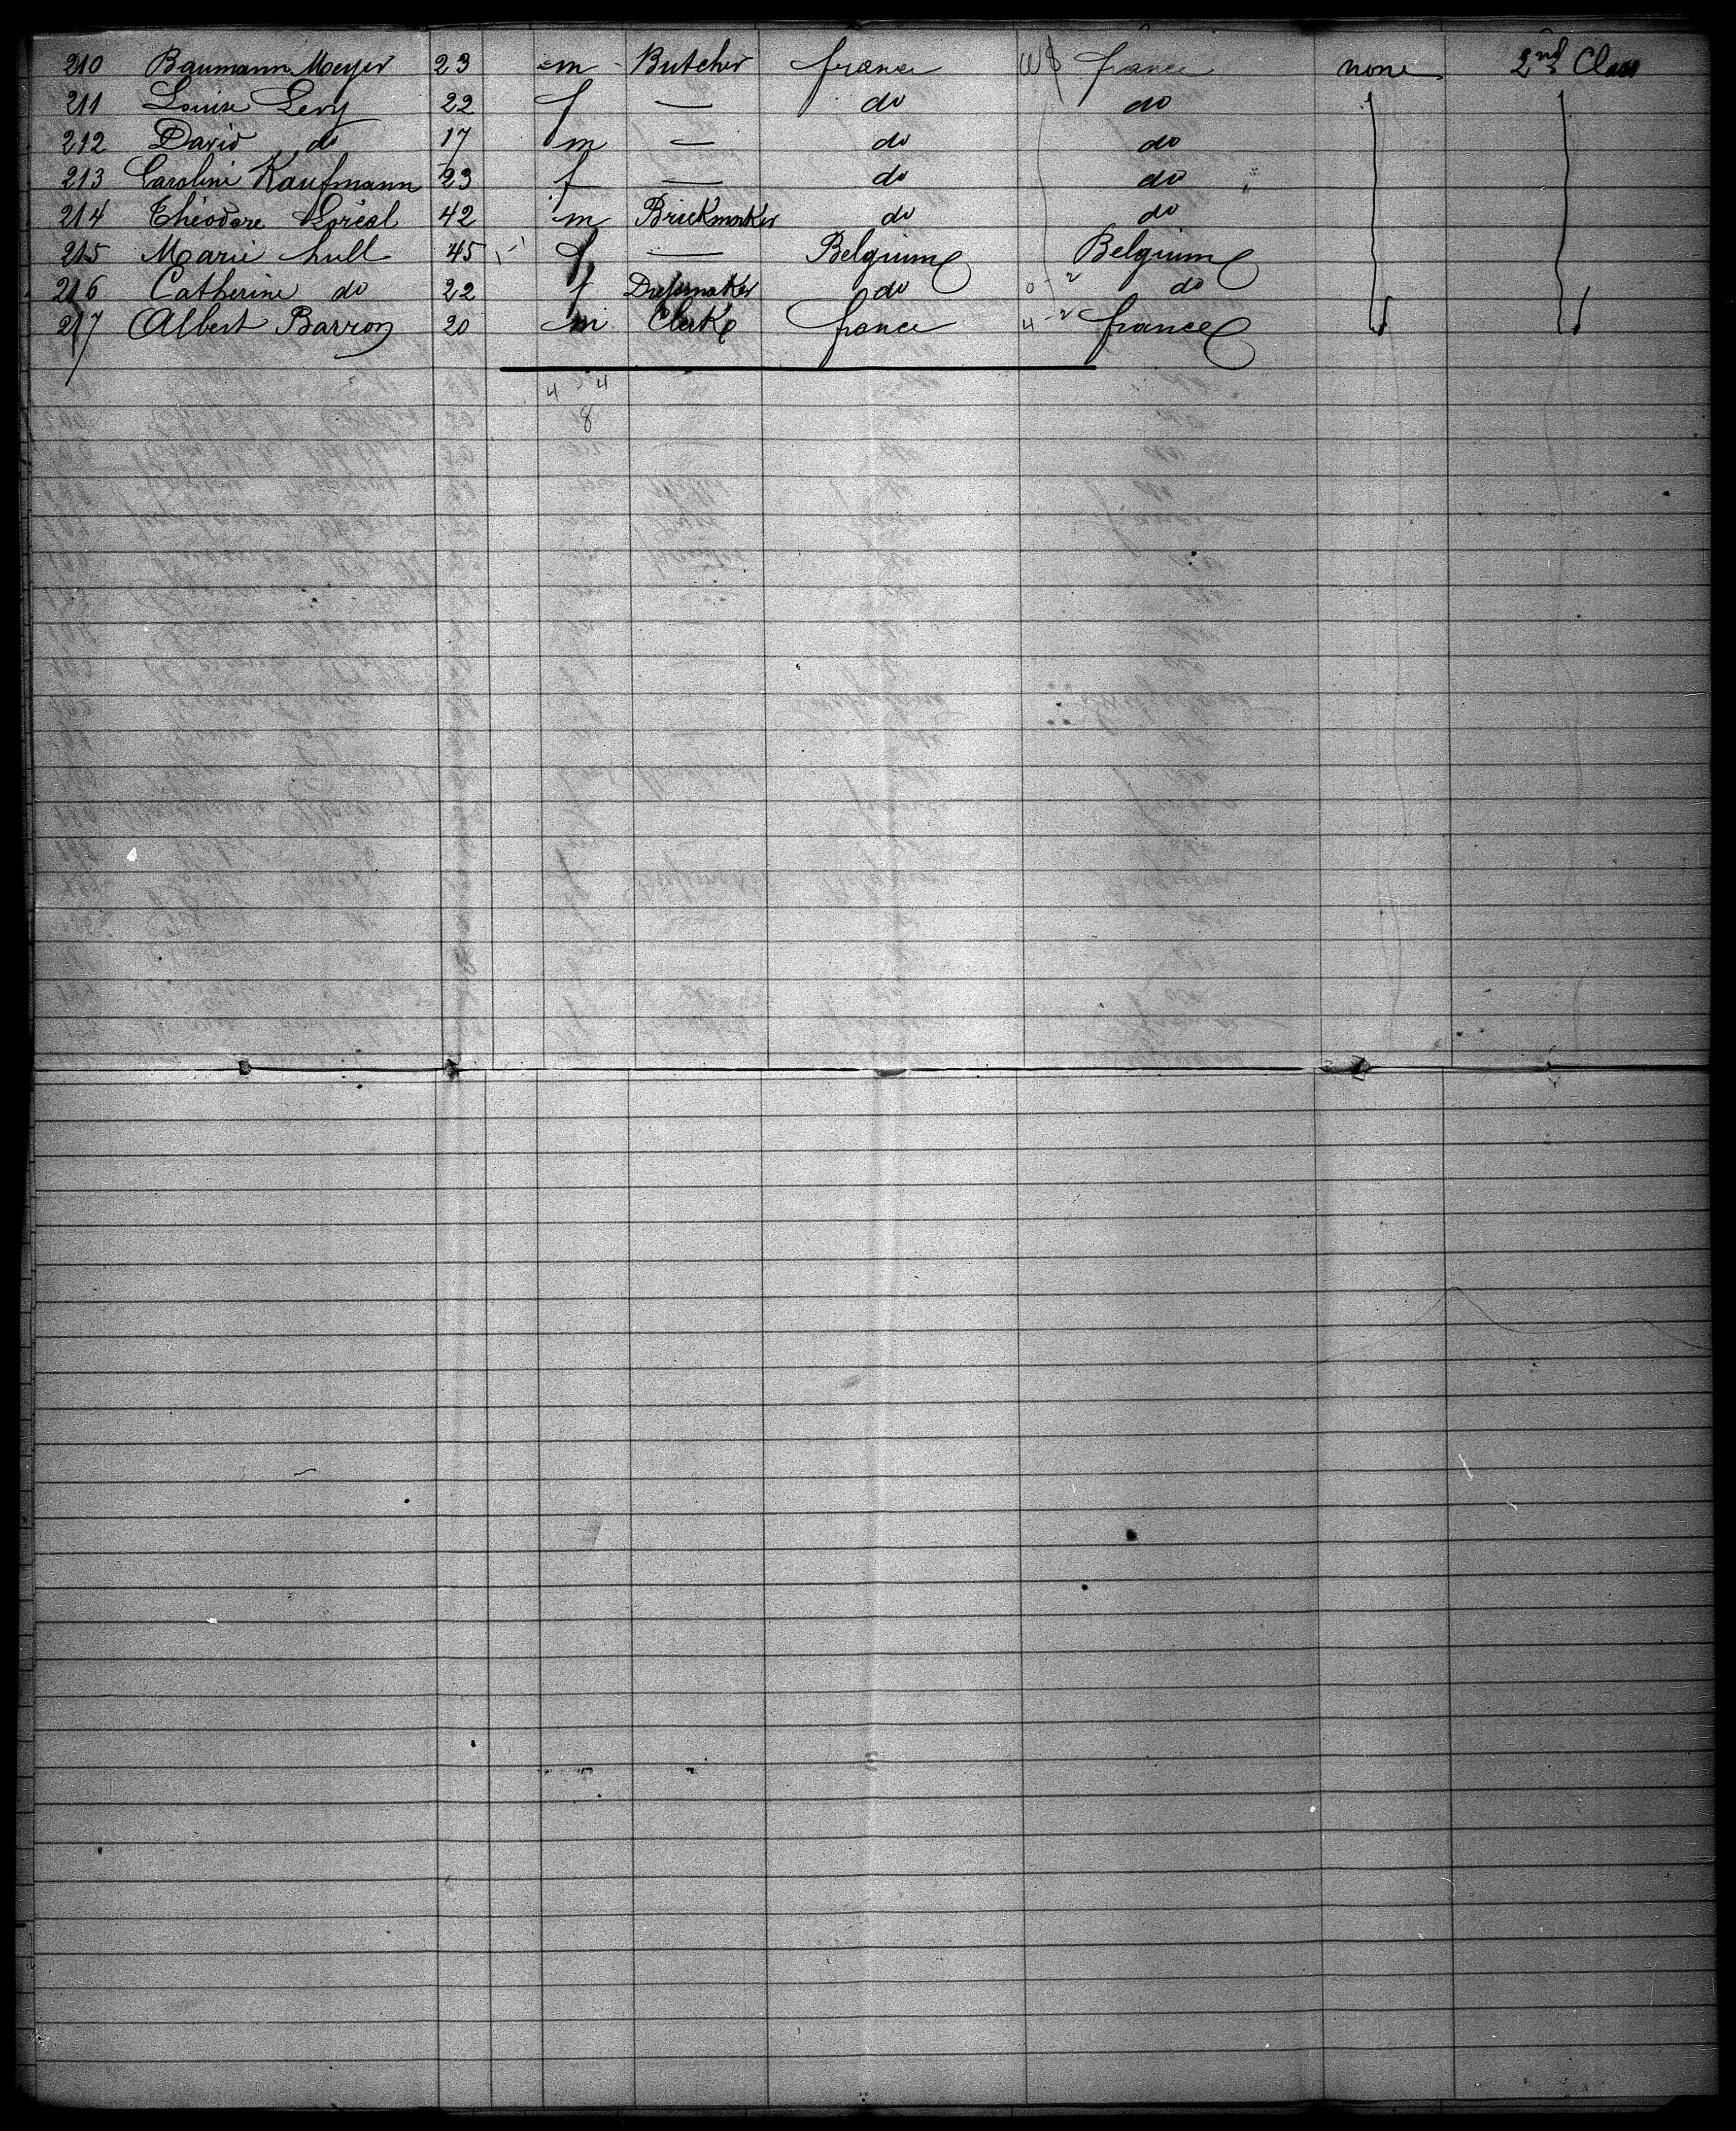 210 Baumann Meyer 23 m Butcher france france none 2nd Class
211 Louise Levy 22 f — do do
212 David do 17 m — do do
213 Caroline Kaufmann 23 f — do do
214 Théodore Loréal 42 m Brickmaker do do
215 Marie hull 45 f — Belgium Belgium
216 Catherine do 22 f Dressmaker do 0-2 do
217 Albert Barron 20 m Clerk france 4-2 france
4 4
8